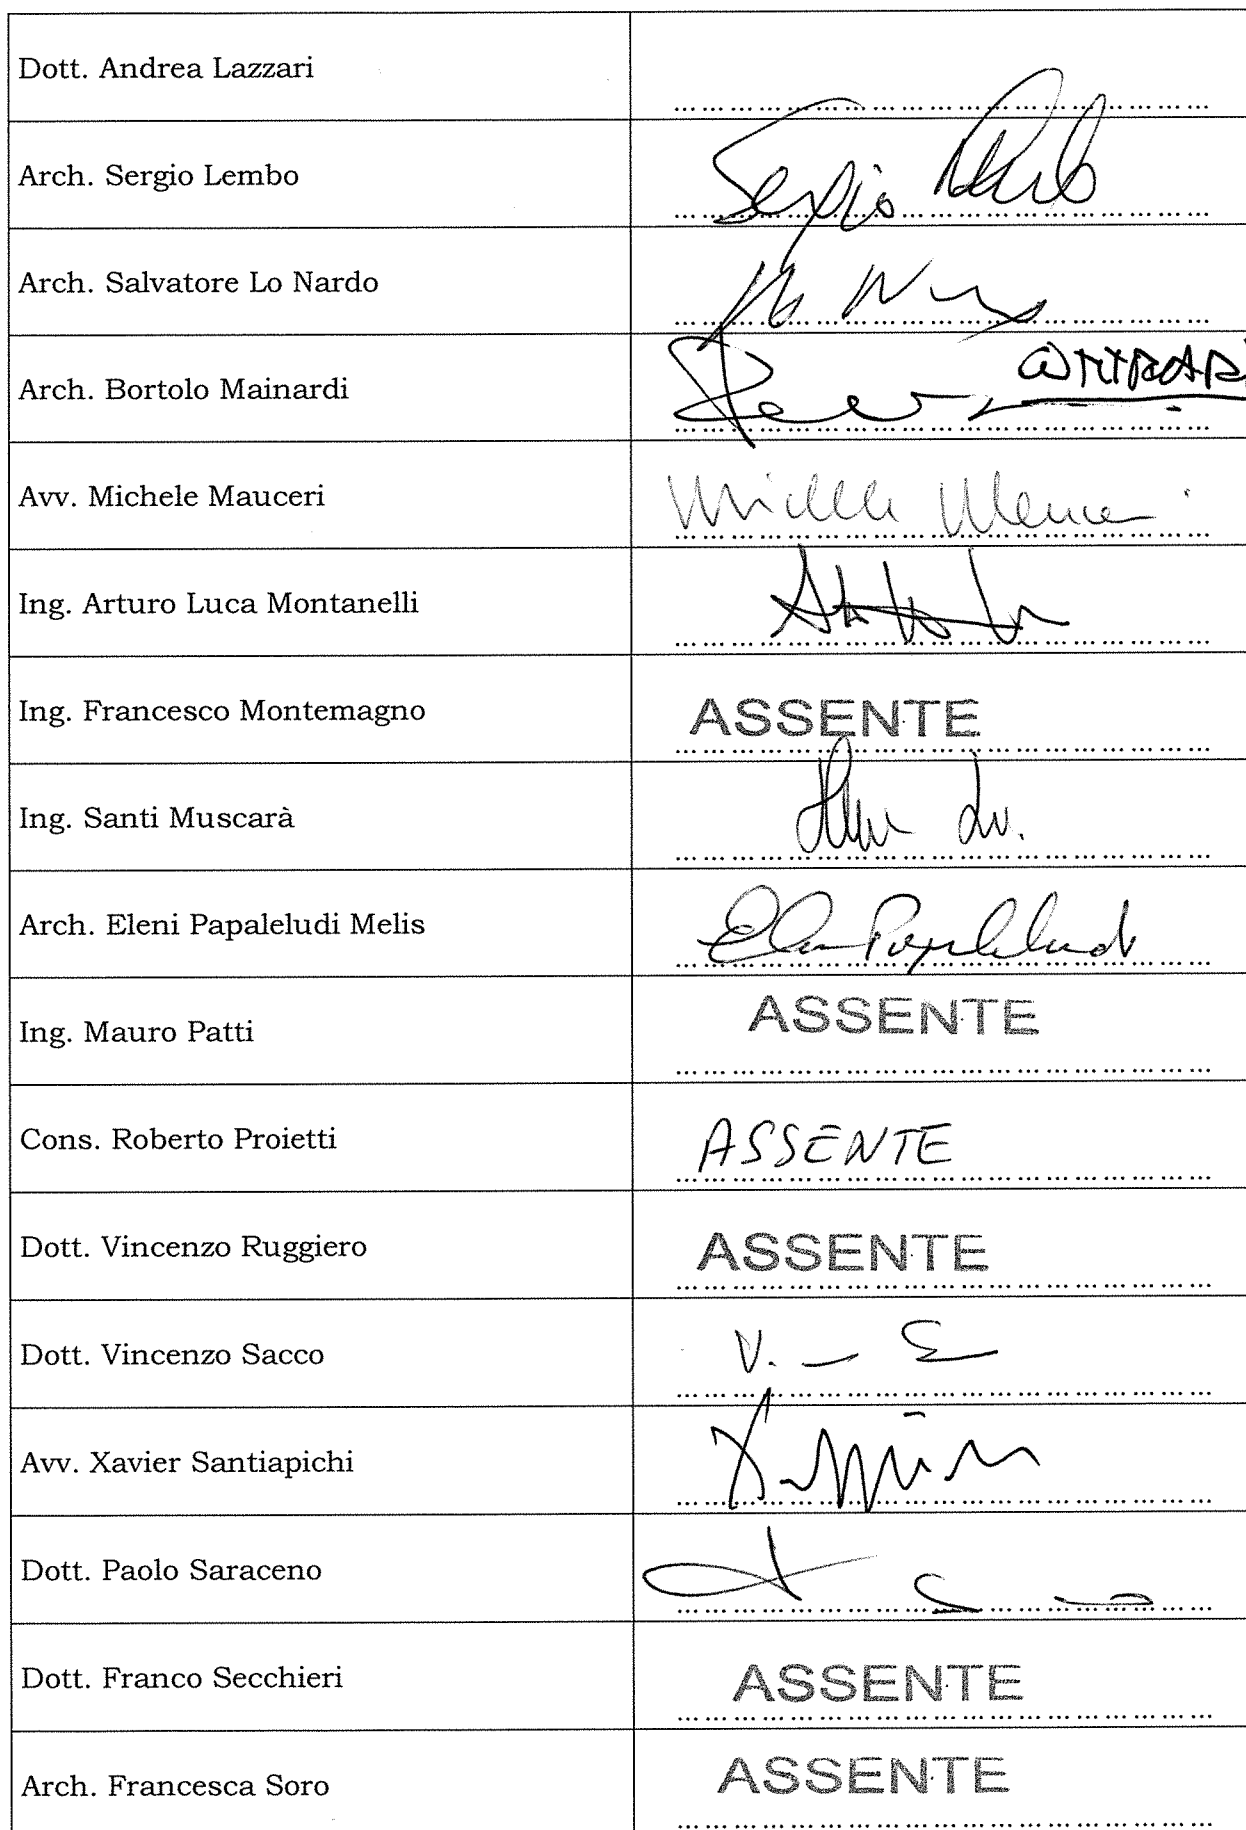 Dott. Andrea Lazzari
Arch. Sergio Lembo
Sergio Lembo
Arch. Salvatore Lo Nardo
Arch. Bortolo Mainardi
Avv. Michele Mauceri
Michele Mauceri
Ing. Arturo Luca Montanelli
Ing. Francesco Montemagno
ASSENTE
Ing. Santi Muscarà
Arch. Eleni Papaleludi Melis
Ing. Mauro Patti
ASSENTE
Cons. Roberto Proietti
ASSENTE
Dott. Vincenzo Ruggiero
ASSENTE
Dott. Vincenzo Sacco
Avv. Xavier Santiapichi
Dott. Paolo Saraceno
Dott. Franco Secchieri
ASSENTE
Arch. Francesca Soro
ASSENTE